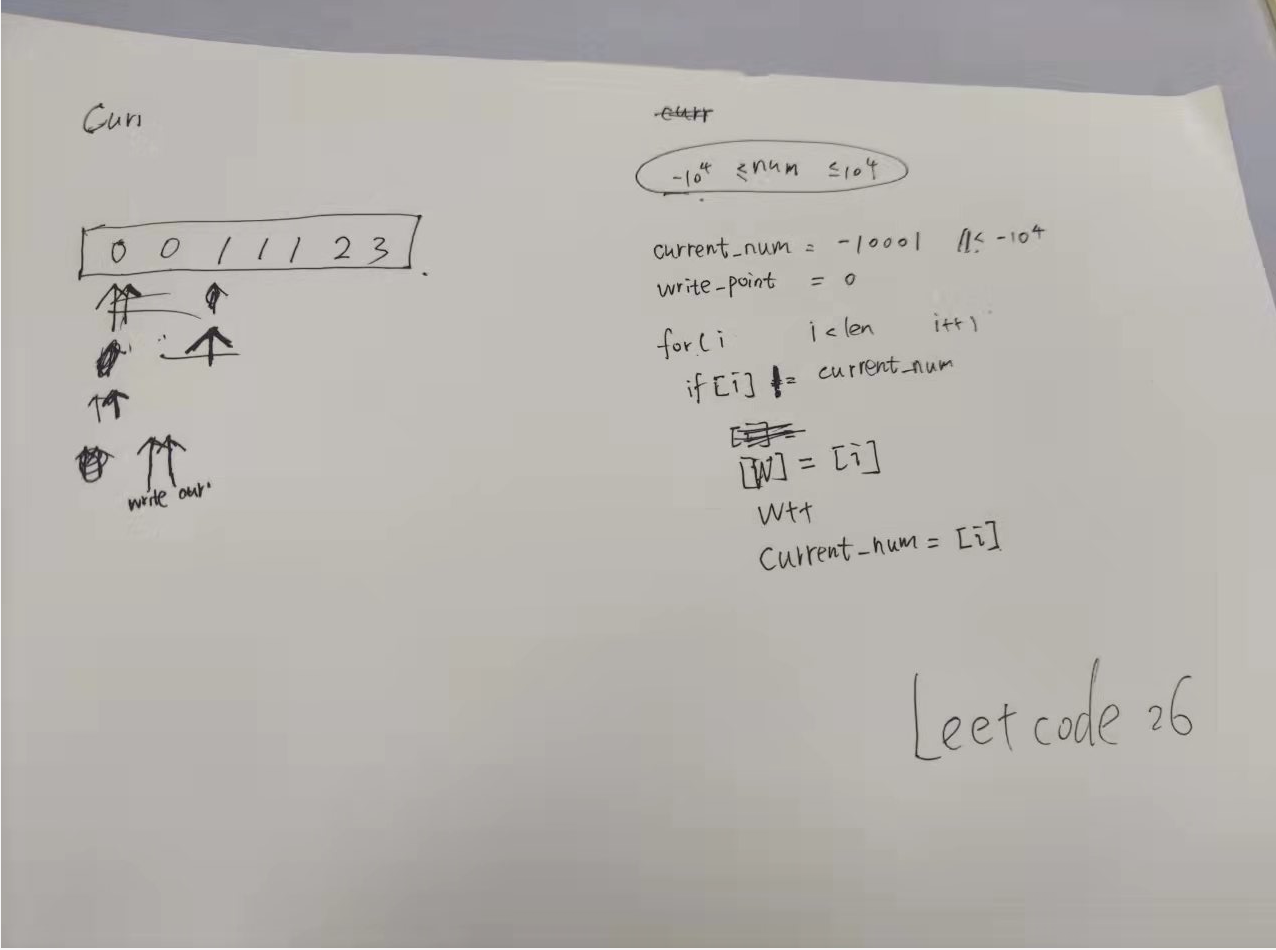 Curr
0 0 1 1 1 2 3
write curr
curr
-10⁴ ≤ num ≤ 10⁴
current_num = -10001 // < -10⁴
write_point = 0
for(i i<len i++)
if [i] != current_num
[W] = [i]
W++
current_num = [i]
Leetcode 26